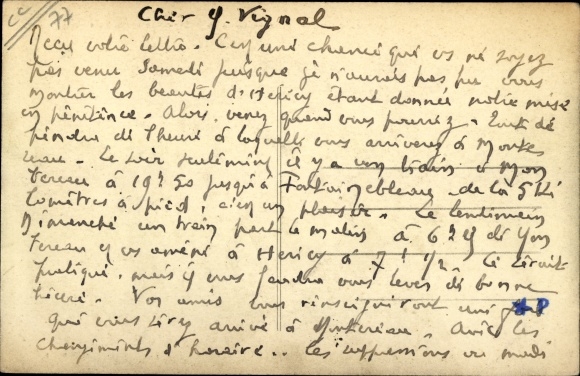 77
Cher Y. Vignal
Reçu votre lettre. C'est une chance que vs ne soyez
pas venu samedi puisque je n'aurais pas pu vous
montrer les beautés d'Hericy étant donnée notre mise
en pénitence. Alors, venez quand vous pourrez. Tout dé
pendra de l'heure à laquelle vous arriverez à Monte
reau. Le soir seulement il y a un train à Mon
tereau à 19h50 jusqu'à Fontainebleau - de là 5 ki
lomètres à pied, c'est un plaisir. Le lendemain
Dimanche un train part le matin à 6h de Mon
tereau et vs amène à Hericy à 7h 1/2. Ce serait
pratique, mais il vous faudra vous lever de bonne
heure. Vos amis vous renseigneront une fois
que vous serez arrivé à Montereau. Avec les
changements d'horaire.. les suppressions ou modi
*P